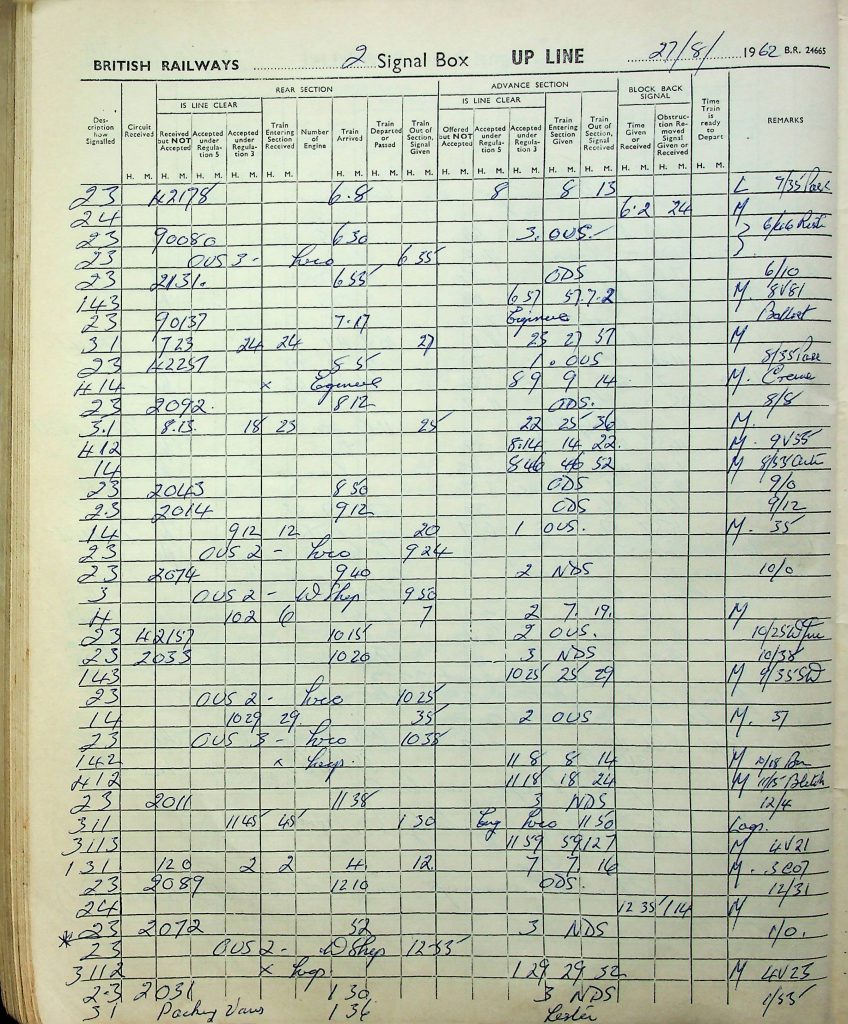 BRITISH RAILWAYS 2 Signal Box UP LINE 27/8/ 1962 B.R. 24665
REAR SECTION ADVANCE SECTION BLOCK BACK SIGNAL
IS LINE CLEAR IS LINE CLEAR
Description how Signalled Circuit Received Received but NOT Accepted Accepted under Regulation 5 Accepted under Regulation 3 Train Entering Section Received Number of Engine Train Arrived Train Departed or Passed Train Out of Section, Signal Given Offered but NOT Accepted Accepted under Regulation 5 Accepted under Regulation 3 Train Entering Section Given Train Out of Section, Signal Received Time Given or Received Obstruction Removed Signal Given or Received Time Train is ready to Depart REMARKS
H. M. H. M. H. M. H. M. H. M. H. M. H. M. H. M. H. M. H. M. H. M. H. M. H. M. H. M. H. M. H. M.
23 42178 6.8 8 8 13 L 9/35
24 6.2 24 M
23 90080 6 30 3. OUS. 6/46
23 OUS 3 - Loco 6 35
23 2131. 6 55 ODS 6/10
143 6 57 57.7.2 M. 8V81
23 90137 7.17 Engineers Ballast
31 723 24 24 27 23 27 37 M
23 42257 8 5 1. OUS 8/35
414 x Engineers 8 9 9 14 M. Crewe
23 2092. 8 12 ODS. 8/8
3.1 8.13. 18 25 25 22 25 36 M.
412 8.14 14 22. M. 9V55
14 8.46 46 52 M
23 2043 8 50 ODS 9/0
2.3 2014 9 12 ODS 9/12
14 9 12 12 20 1 OUS. M. 35
23 OUS 2 - Loco 9 24
23 2074 9 40 2 NDS 10/0
3 OUS 2 - W Shop 9 50
4 10 2 6 7 2 7. 19. M
23 42157 10 15 2 OUS. 10/25
23 2033 10 20 3 NDS 10/38
143 10 25 25 29 M 9/35 SD
23 OUS 2 - Loco 10 25
14 10 29 29. 35 2 OUS M. 37
23 OUS 3 - Loco 10 38
142 x Loop. 11 8 8 14 M
412 11 18 18 24 M 11/15 Bletch
23 2011 11 38 3 NDS 12/4
311 11 45 45 1 30 Eng Loco 11 50 Loop.
3113 11 59 59.12 7 M 4V21
131 12 0 2 2 4. 12. 7 7. 16 M.
23 2089 12 10 ODS. 12/31
24 12 35 1 14 M
* 23 2072 52 3 NDS 1/0.
23 OUS 2 - W Shop 12-55
3112 x Loop. 1 29 29 32 M 4V23
2.3 2031 1 30 3 NDS 1/55
31 Packing Vans 1 36